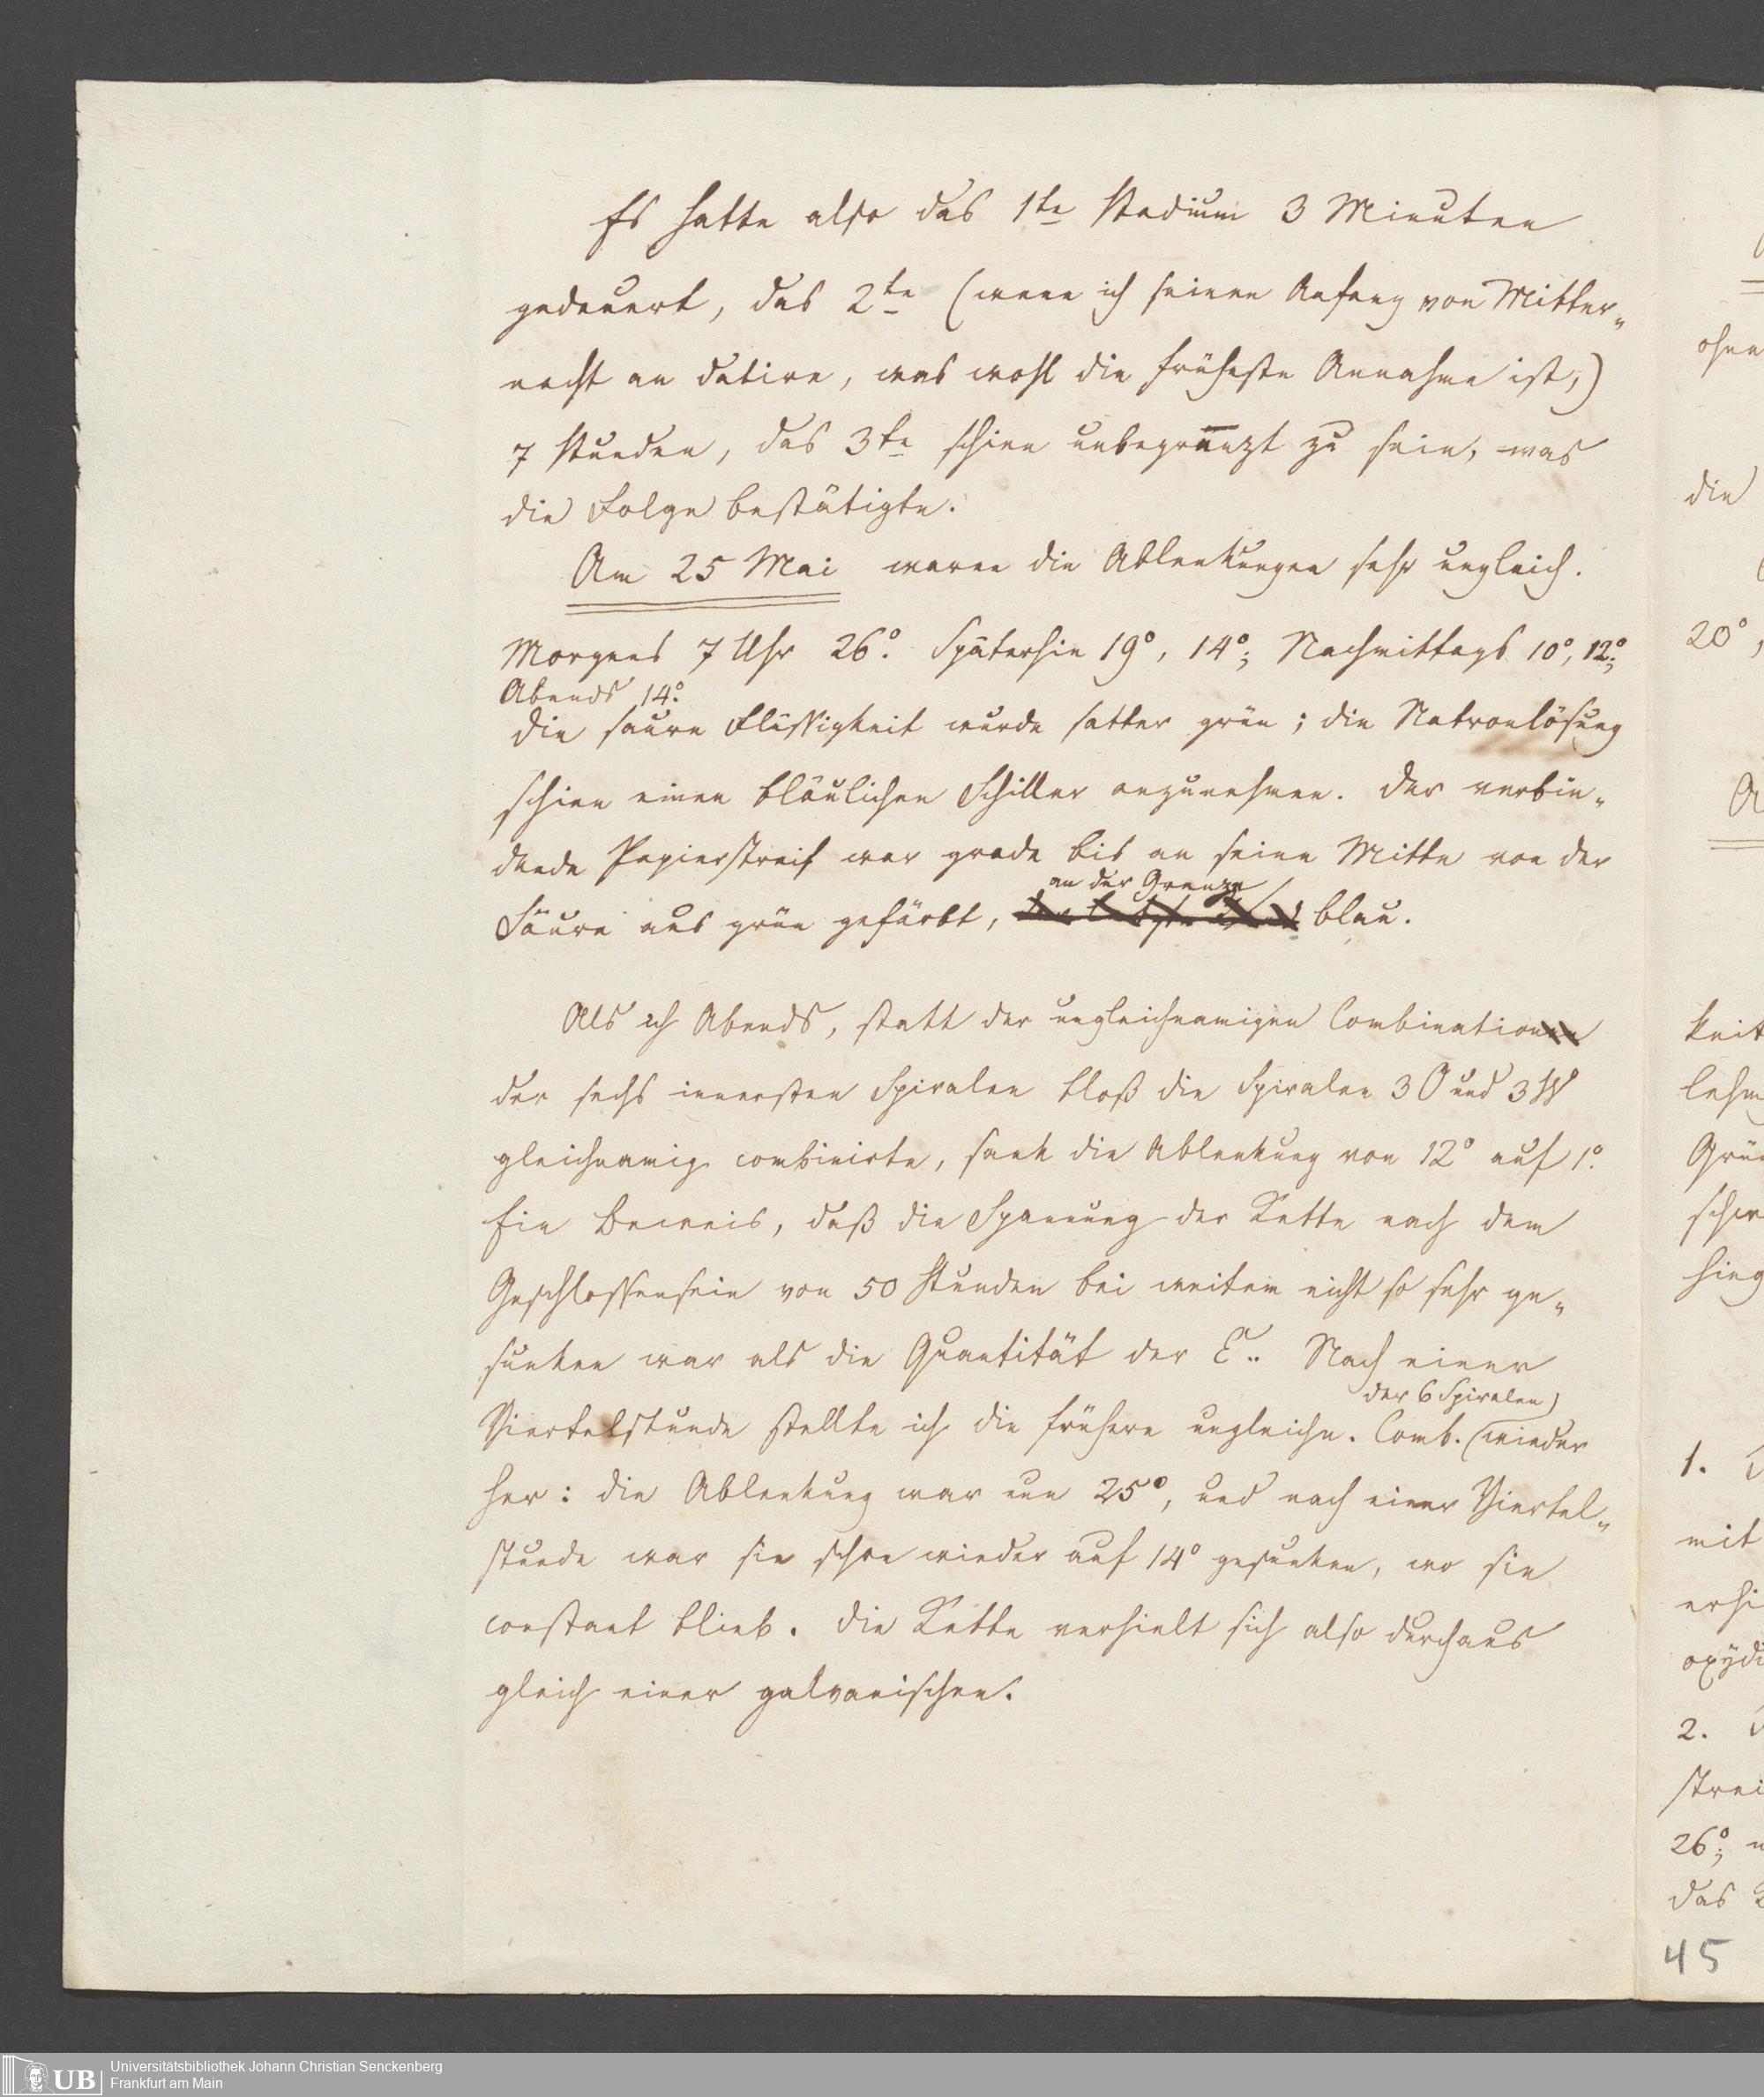 Es hatte also das 1te Stadium 3 Minuten
gedauert, das 2te (wenn ich seinen Anfang von Mitter„
nacht an datire, was wohl die früheste Annahme ist,)
7 Stunden, das 3te schien unbegränzt zu sein, was
die Folge bestätigte.
Am 25 Mai waren die Ablenkungen sehr ungleich.
Morgens 7 Uhr 26°. Späterhin 19°, 14°; Nachmittags 10°, 12°;
Abends 14°.
Die saure Flüssigkeit wurde satter grün; die Natronlösung
schien einen bläulichen Schiller anzunehmen. Der verbin„
dende Papierstreif war grade bis an seine Mitte von der
an der Grenze
Säure aus grün gefärbt, blau.
Als ich Abends, statt der ungleichnamigen Combination
der sechs innersten Spiralen bloß die Spiralen 3 O und 3 W
gleichnamig combinirte, sank die Ablenkung von 12° auf 1°.
Ein Beweis, daß die Spannung der Kette nach dem
Geschlossensein von 50 Stunden bei weitem nicht so sehr ge„
sunken war als die Quantität der E.. Nach einer
der 6 Spiralen)
Viertelstunde stellte ich die frühere ungleichn. Comb. (wieder
her: die Ablenkung war nun 25°, und nach einer Viertel„
stunde war sie schon wieder auf 14° gesunken, wo sie
constant blieb. Die Kette verhielt sich also durchaus
gleich einer galvanischen.
ohne
die
20°,
A
keit
lehm
Grün
schw
hing
1.
mit
erhi
oxyd
2.
strei
26°;
das
45
UB
Universitätsbibliothek Johann Christian Senckenberg
Frankfurt am Main